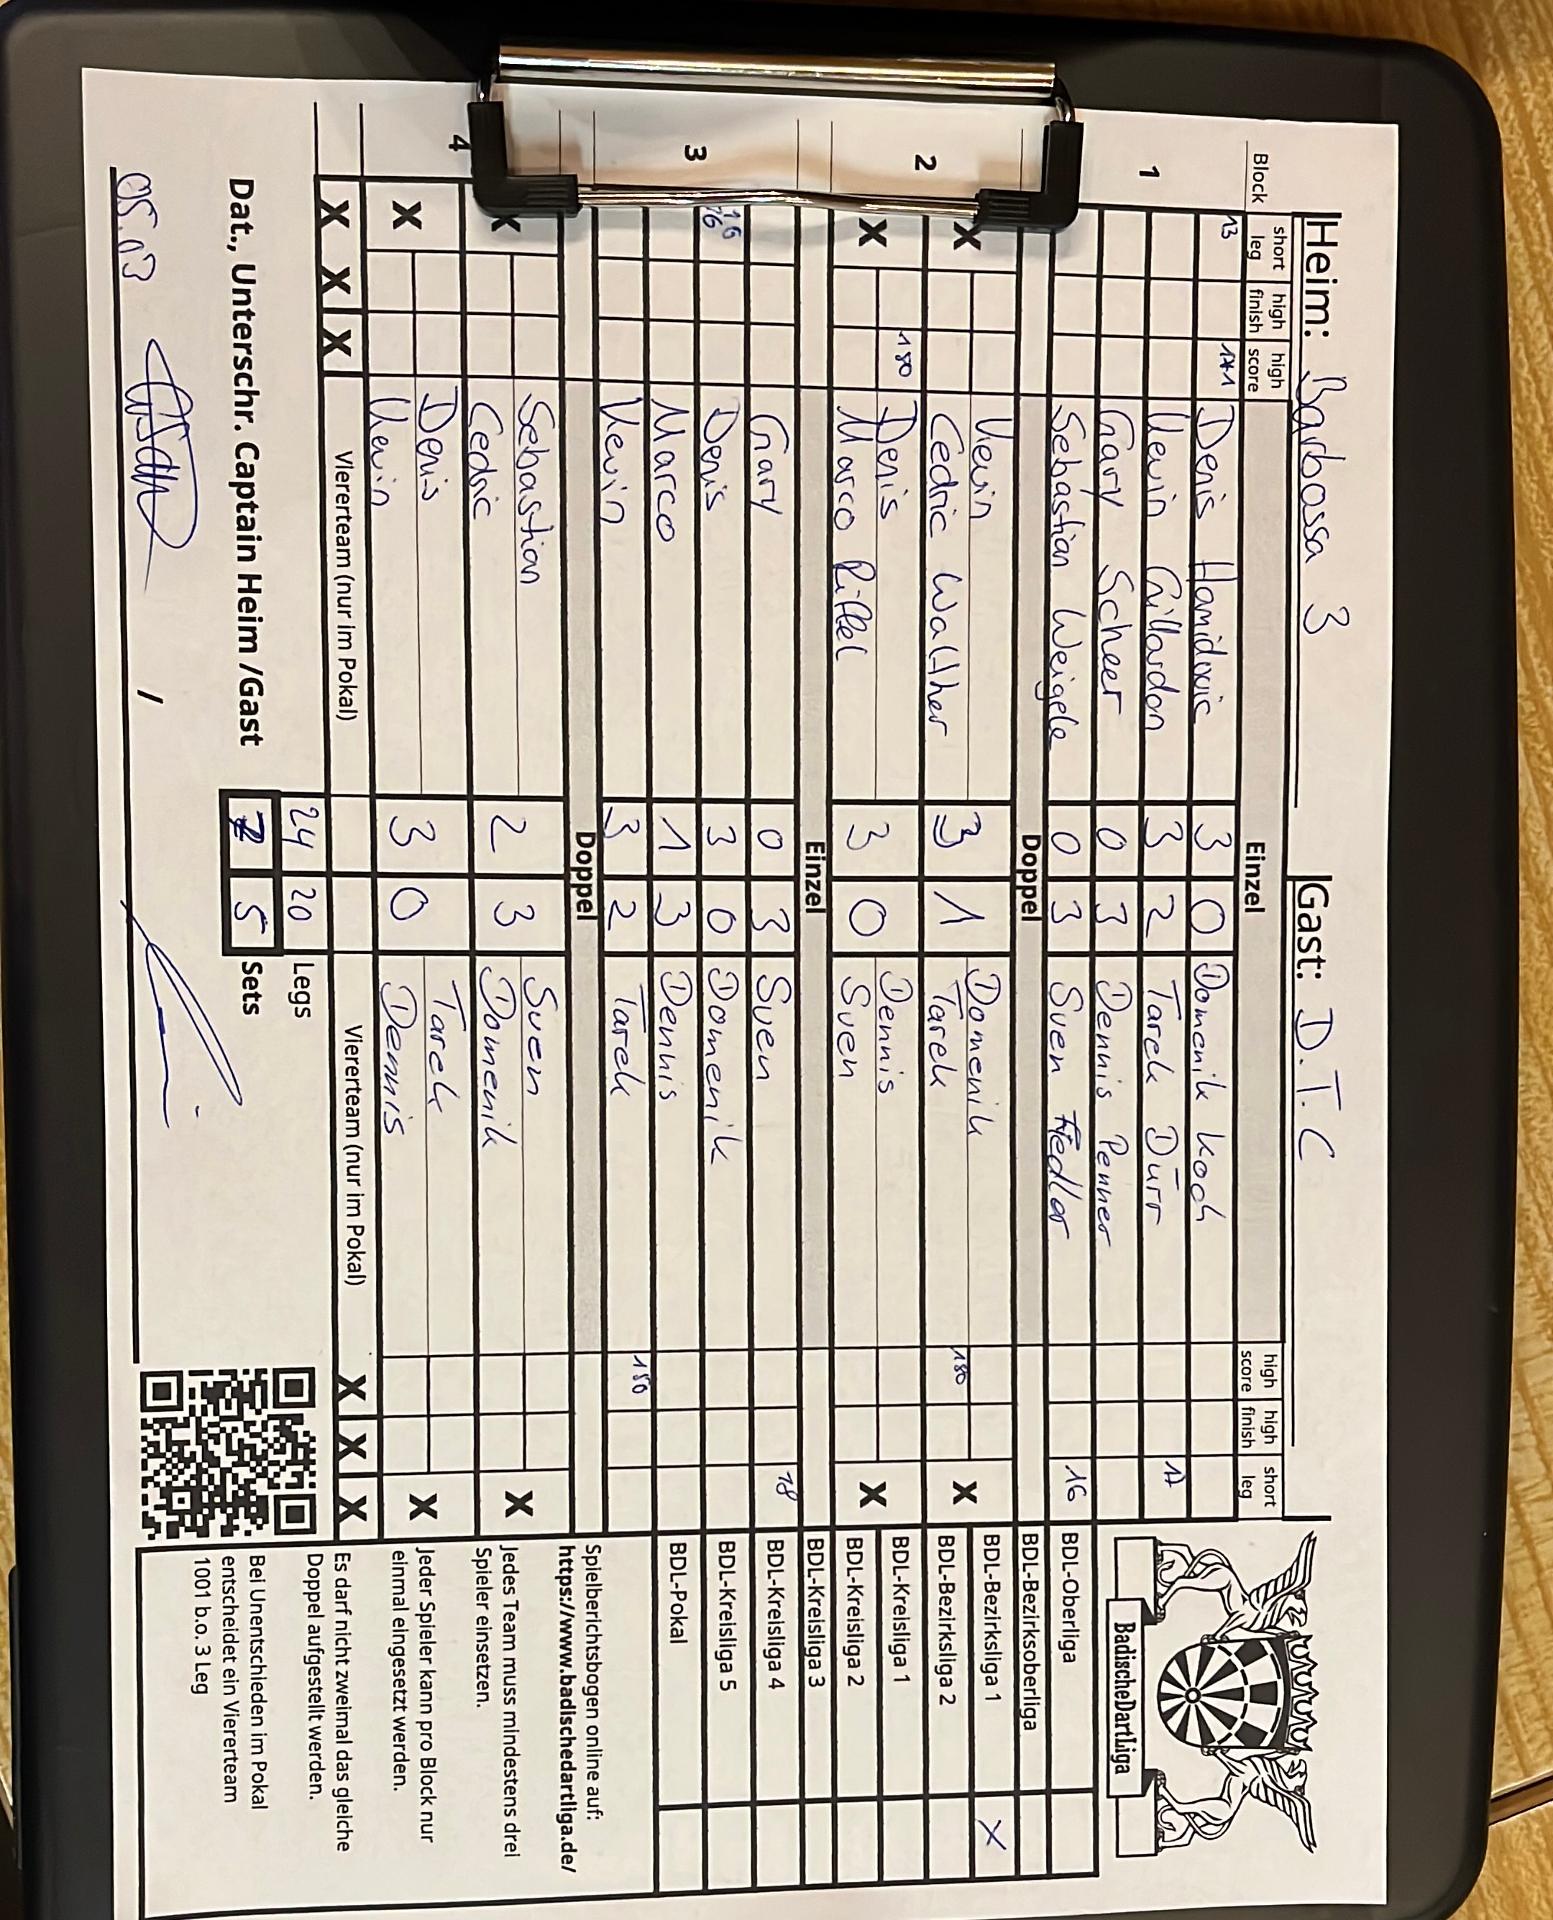 Heim: Barbossa 3 Gast: D.T.C
Block short leg high finish high score Einzel high score high finish short leg
BadischeDartLiga
1
13 171 Denis Hamidovic 3 0 Domenik Koch
Kevin Gillardon 3 2 Tarek Dürr 17
Gary Scheer 0 3 Dennis Penner
Sebastian Weigele 0 3 Sven Fiedler 16
BDL-Oberliga
Doppel
BDL-Bezirksoberliga
2
Kevin Domenik
BDL-Bezirksliga 1 X
X Cedric Walther 3 1 Tarek 180 X
BDL-Bezirksliga 2
180 Denis Dennis
BDL-Kreisliga 1
X Marco Riffel 3 0 Sven X
BDL-Kreisliga 2
Einzel
BDL-Kreisliga 3
3
Gary 0 3 Sven 18
BDL-Kreisliga 4
16 16 Denis 3 0 Domenik
BDL-Kreisliga 5
Marco 1 3 Dennis
BDL-Pokal
Kevin 3 2 Tarek 180
Doppel
Spielberichtsbogen online auf:
https://www.badischedartliga.de/
4
Sebastian Sven
X Cedric 2 3 Domenik X
Jedes Team muss mindestens drei
Spieler einsetzen.
Denis Tarek
X Kevin 3 0 Dennis X
Jeder Spieler kann pro Block nur
einmal eingesetzt werden.
X X X Viererteam (nur im Pokal) Viererteam (nur im Pokal) X X X
Es darf nicht zweimal das gleiche
Doppel aufgestellt werden.
24 20 Legs
Dat., Unterschr. Captain Heim /Gast 7 5 Sets
Bei Unentschieden im Pokal
entscheidet ein Viererteam
1001 b.o. 3 Leg
05.03 /